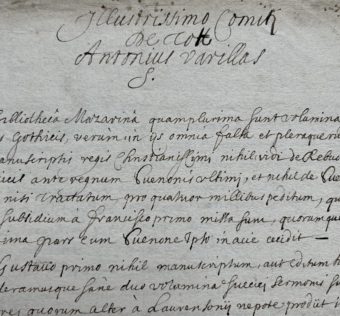 Illustrissimo Comiti
Antonius Varillas
S.
Bibliothecâ Mazarinâ quamplurima sunt volumina
s Gothicis, verùm in ijs omnia falsa et pleraque
manuscriptis regis Christianissimi nihil vidi de Rebus
ante regnum Suenonis ultimi, et nihil de
nisi Tractatum, pro quatuor millibus peditum,
subsidium à Francisco primo missa sunt, quorumque
tima pars cum Suenone ipso in acie cecidit —
Gustavo primo nihil manuscriptum, aut editum
sane duo volumina Suecici sermonis
res quorum alter à Laurentonij nepote prodiit